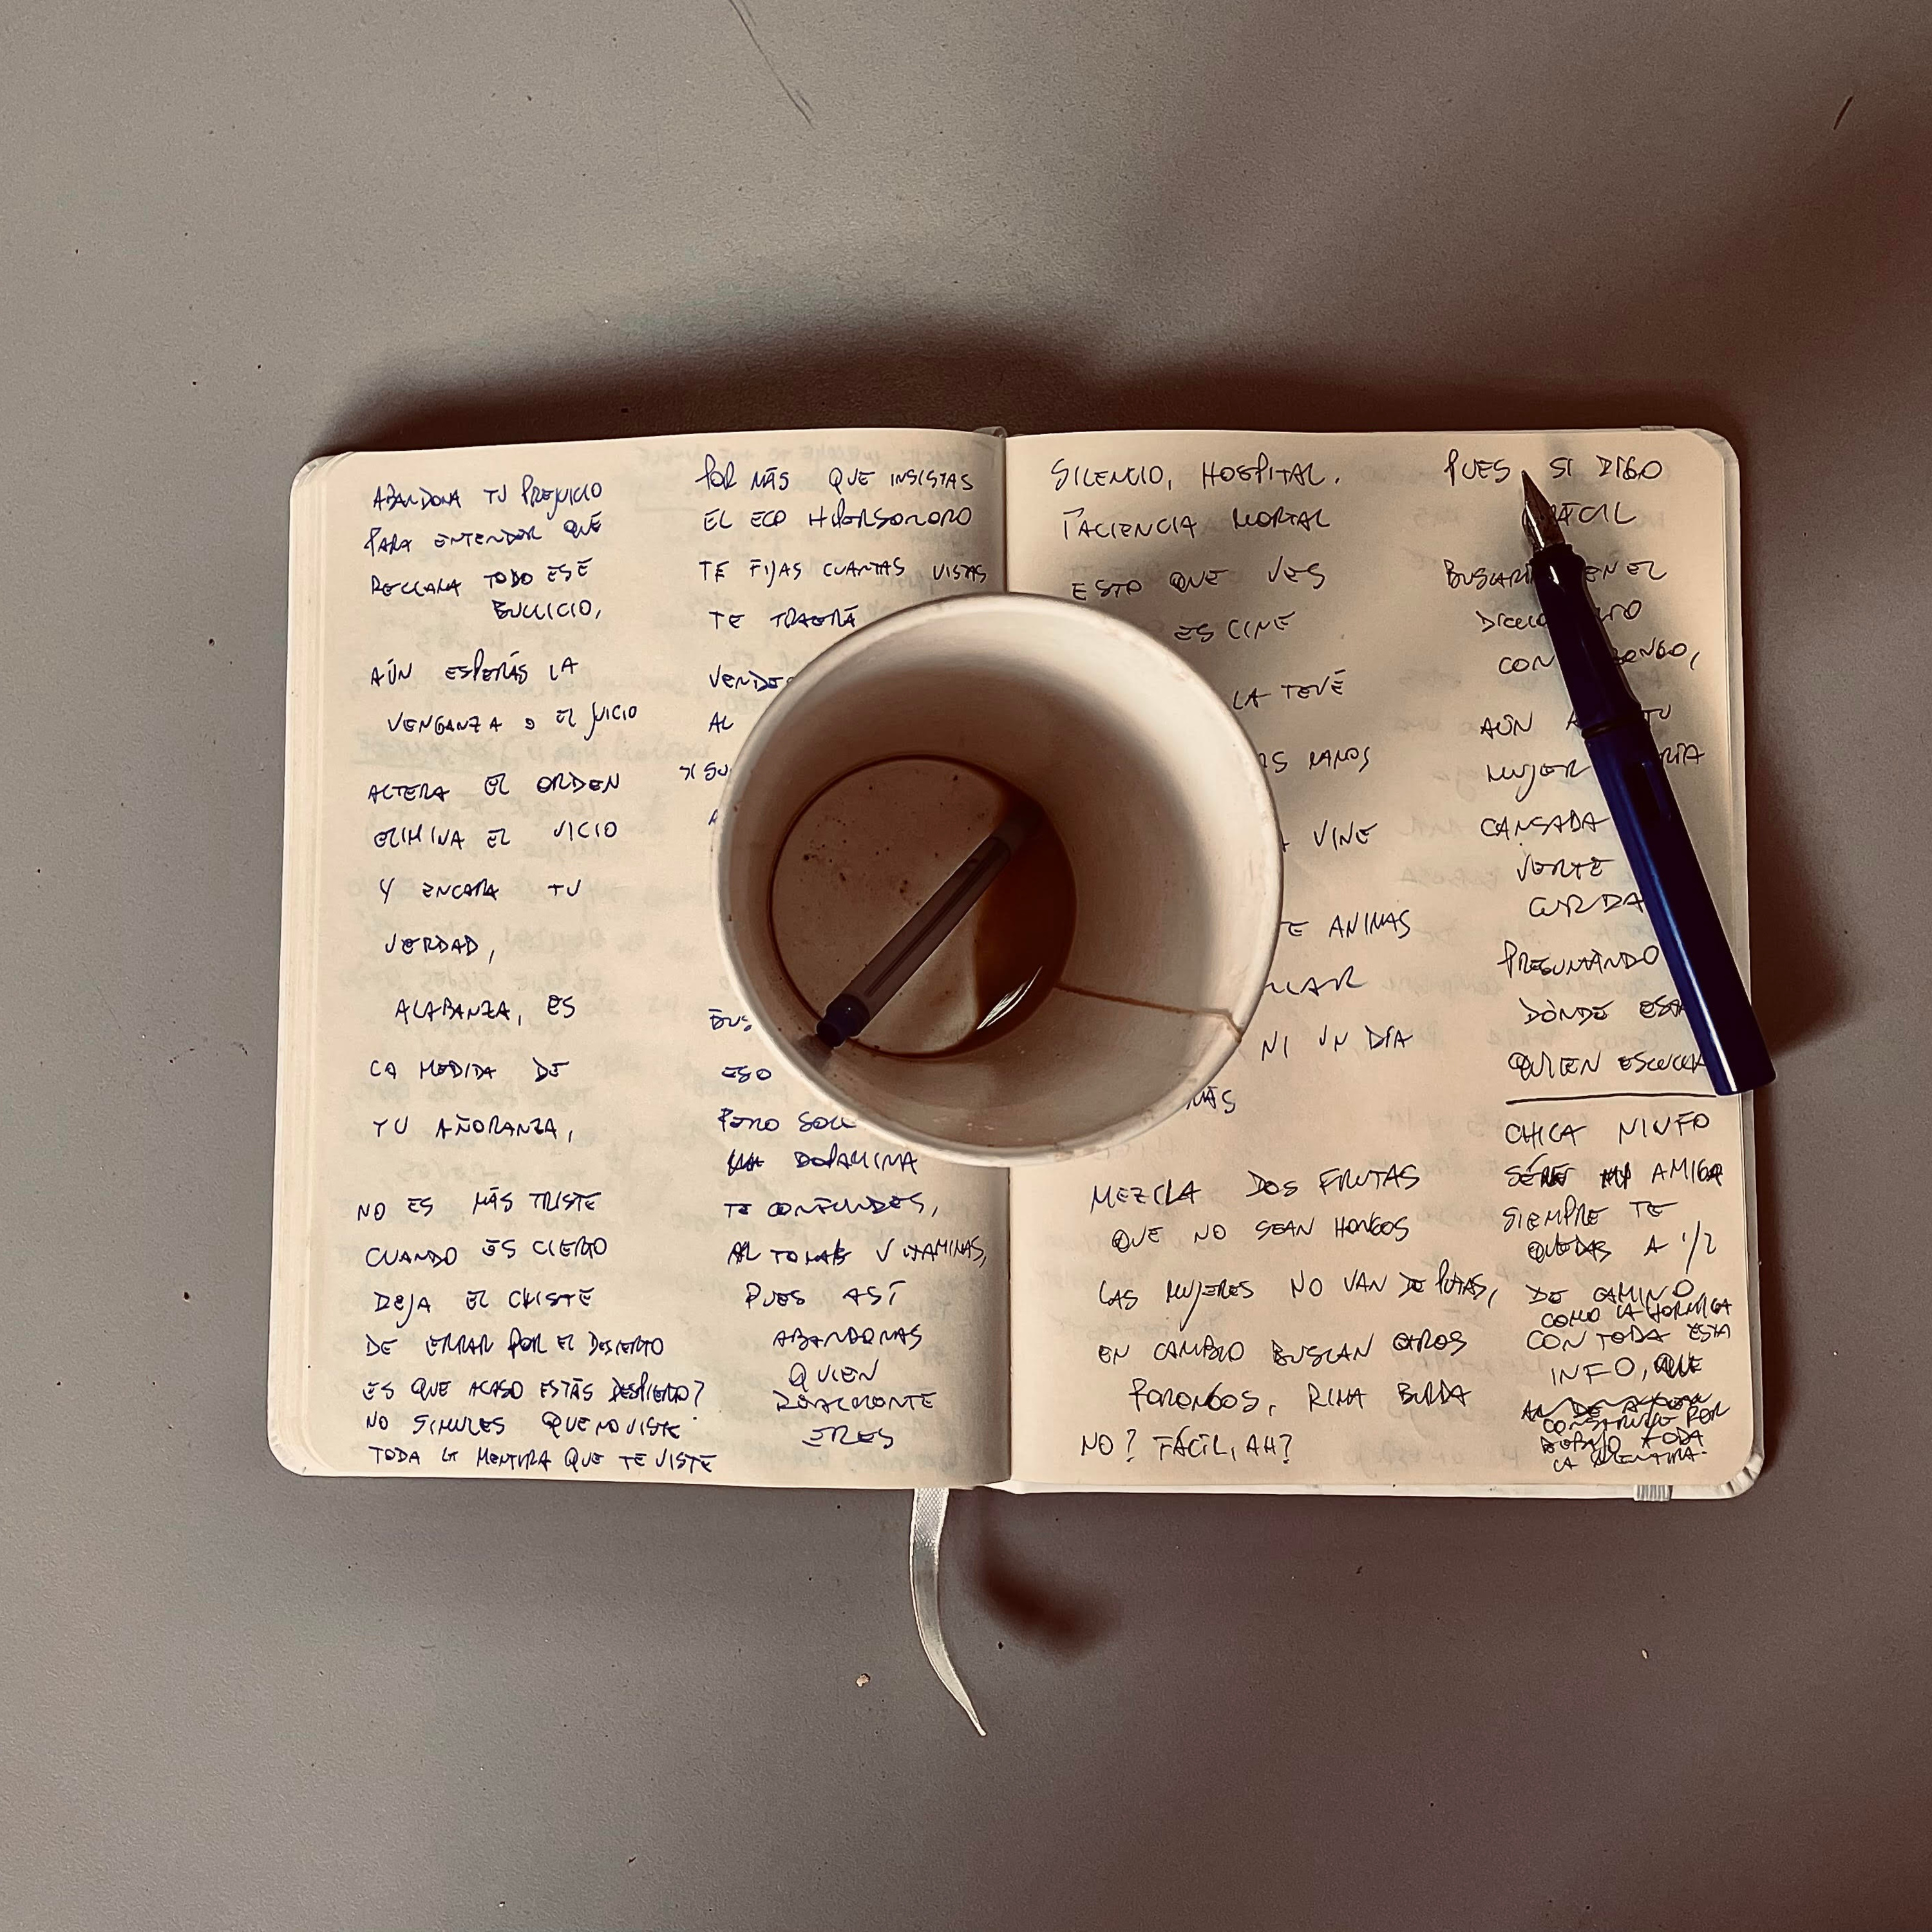 ABANDONA TU PREJUICIO
PARA ENTENDER QUÉ
RECLAMA TODO ESE
BULLICIO,
AÚN ESPERÁS LA
VENGANZA O EL JUICIO
ALTERA EL ORDEN
ELIMINA EL VICIO
Y ENCARA TU
VERDAD,
ALABANZA, ES
LA MEDIDA DE
TU AÑORANZA,
NO ES MÁS TRISTE
CUANDO ES CIERTO
DEJA EL CHISTE
DE ERRAR POR EL DESIERTO
ES QUE ACASO ESTÁS DESPIERTO?
NO SIMULES QUE NO VISTE
TODA LA MENTIRA QUE TE VISTE
POR MÁS QUE INSISTAS
EL ECO HIPERSONORO
TE FIJAS CUANTAS VISTAS
TE TRAERÁ
AL
ESO
PERO SOLO
DOPAMINA
TE CONFUNDES,
AL TOMAR VITAMINAS,
PUES ASÍ
ABANDONAS
QUIEN
REALMENTE
ERES
SILENCIO, HOSPITAL.
PACIENCIA MORTAL
ESTO QUE VES
ES CINE
LA TEVÉ
RAMOS
VINE
TE ANIMAS
NI UN DÍA
MÁS
MEZCLA DOS FRUTAS
QUE NO SEAN HONGOS
LAS MUJERES NO VAN DE PUTAS,
EN CAMBIO BUSCAN OTROS
PORONGOS, RIMA BURDA
NO? FÁCIL, AH?
PUES SI DIGO
FÁCIL
EN EL
CON
AÚN A TU
MUJER
CANSADA
VERTE
CURDA
PREGUNTANDO
DÓNDE ESTÁ
QUIEN ESCUCHA
CHICA NINFO
SÉRÉ MI AMIGA
SIEMPRE TE
QUEDAS A 1/2
DE CAMINO
COMO LA HORMIGA
CON TODA ESTA
INFO, QUE
CONSTRUYE POR
DEBAJO TODA
LA MENTIRA.